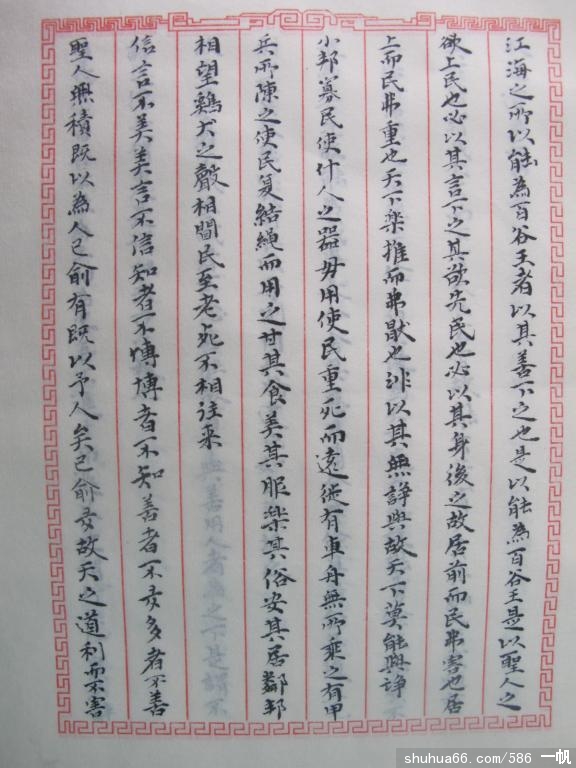 江海之所以能為百谷王者以其善下之也是以能為百谷王是以聖人之
欲上民也必以其言下之其欲先民也必以其身後之故居前而民弗害也居
上而民弗重也天下樂推而弗猒也非以其無諍與故天下莫能與諍
小邦寡民使什人之器毋用使民重死而遠徙有車舟無所乘之有甲
兵所陳之使民复結繩而用之甘其食美其服樂其俗安其居鄰邦
相望鷄犬之聲相聞民至老死不相往来
信言不美美言不信知者不博博者不知善者不多多者不善
聖人無積既以為人己俞有既以予人矣己俞多故天之道利而不害
shuhua66.com/586 一帆